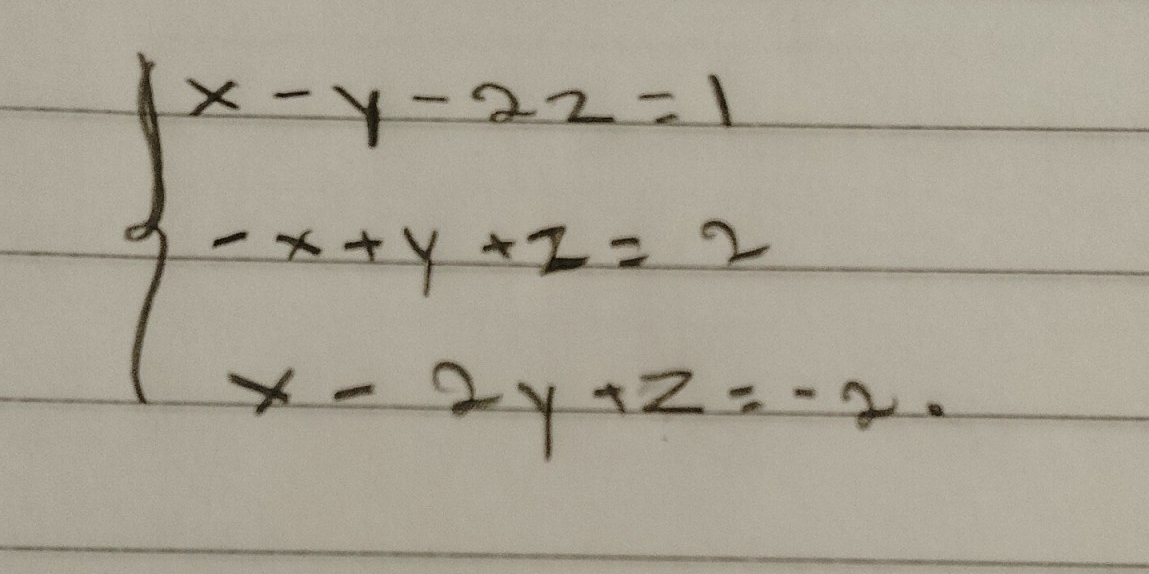 x - y - 2z = 1
- x + y + z = 2
x - 2y + z = -2.